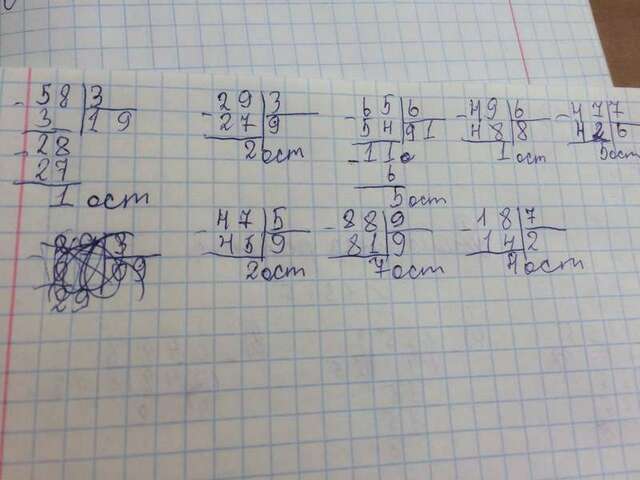 -58|3
3|19
-28
27
1 ост
-29|3
27|9
2 ост
-65|6
54|91
-11
6
5 ост
-49|6
48|8
1 ост
-47|7
42|6
5 ост
-47|5
45|9
2 ост
-88|9
81|9
7 ост
-18|7
14|2
4 ост